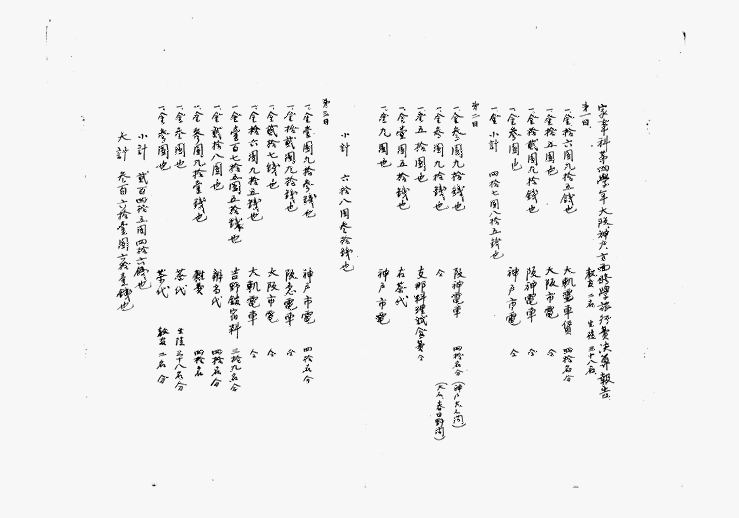 家事科第四學年大阪神戸方面修學旅行費決算報告
教官 二名 生徒 三十八名
第一日
一、金拾六圓九拾五錢也 大軌電車賃 四拾名分
一、金拾五圓也 大阪市電 仝
一、金拾貳圓九拾錢也 阪神電車 仝
一、金参圓也 神戸市電 仝
一、金小計 四拾七圓八拾五錢也
第二日
一、金参圓九拾錢也 阪神電車 四拾名分(神戸大人間)
一、金参圓九拾錢也 仝 (大人春日野間)
一、金五拾圓也 支那料理試食費 仝
一、金壹圓五拾錢也 右茶代
一、金九圓也 神戸市電
小計 六拾八圓参拾錢也
第三日
一、金壹圓九拾参錢也 神戸市電 四拾名分
一、金拾貳圓九拾錢也 阪急電車 仝
一、金貳拾七錢也 大阪市電 仝
一、金拾六圓九拾五錢也 大軌電車 仝
一、金壹百七拾五圓五拾錢也 吉野館宿料 三拾九名分
一、金貳拾八圓也 辨当代 四拾名分
一、金参圓九拾壹錢也 雜費 四拾名
一、金参圓也 茶代 生徒三十八名分
一、金参圓也 茶代 教官二名分
小計 貳百四拾五圓四拾六錢也
大計 参百六拾壹圓六拾壹錢也